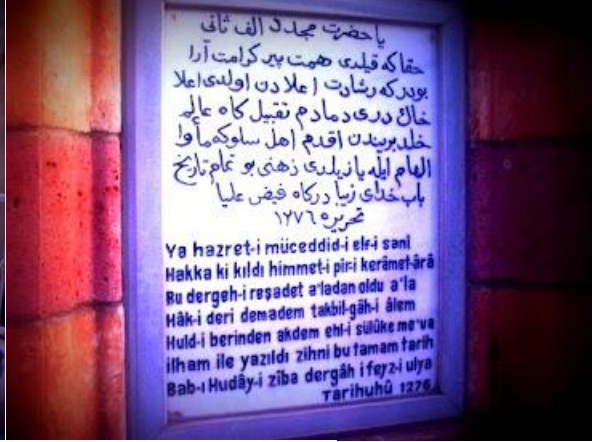 يا حضرت مجدد الف ثانى
حقا كه قيلدى همت پير كرامت آرا
بودركه رشادت اعلادن اولدى اعلا
خاك درى دمادم تقبيل كاه عالم
خلد بريندن اقدم اهل سلوكه مأوا
الهام ايله يازيلدى ذهنى بو تمام تاريخ
باب خداى زيبا دركاه فيض عليا
تحريره ١٢٧٦
Ya hazret-i müceddid-i elf-i sani
Hakka ki kıldı himmet-i pir-i kerâmet-ârâ
Bu dergeh-i reşadet a'ladan oldu a'la
Hâk-i deri demadem takbil-gâh-i âlem
Huld-i berinden akdem ehl-i sülûke me'va
ilham ile yazıldı zihni bu tamam tarih
Bab-ı Hudây-i ziba dergâh i feyz-i ulya
Tarihuhû 1276